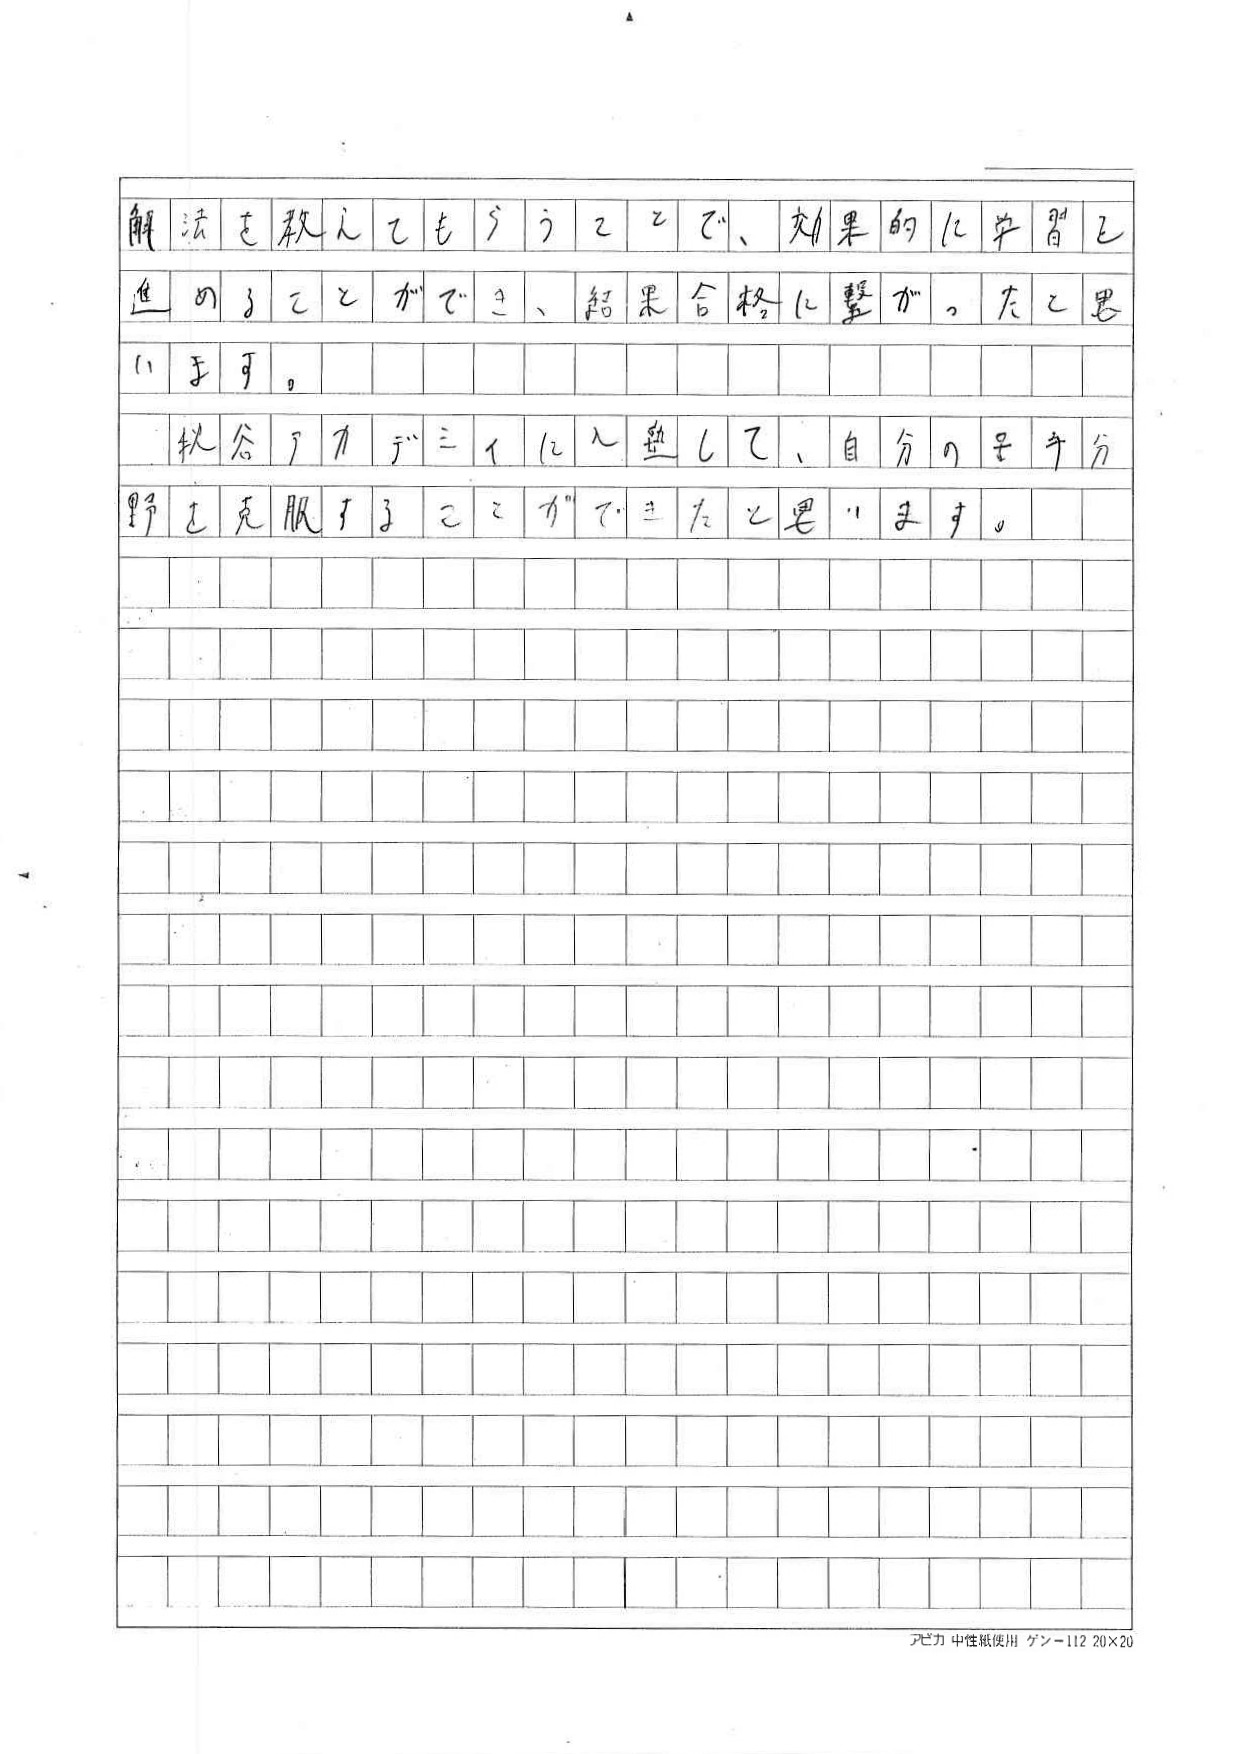 解法を教えてもらうことで、効果的に学習を
進めることができ、結果合格に繋がったと思
います。
秋谷アカデミイに入塾して、自分の苦手分
野を克服することができたと思います。
アピカ 中性紙使用 ゲンー112 20×20